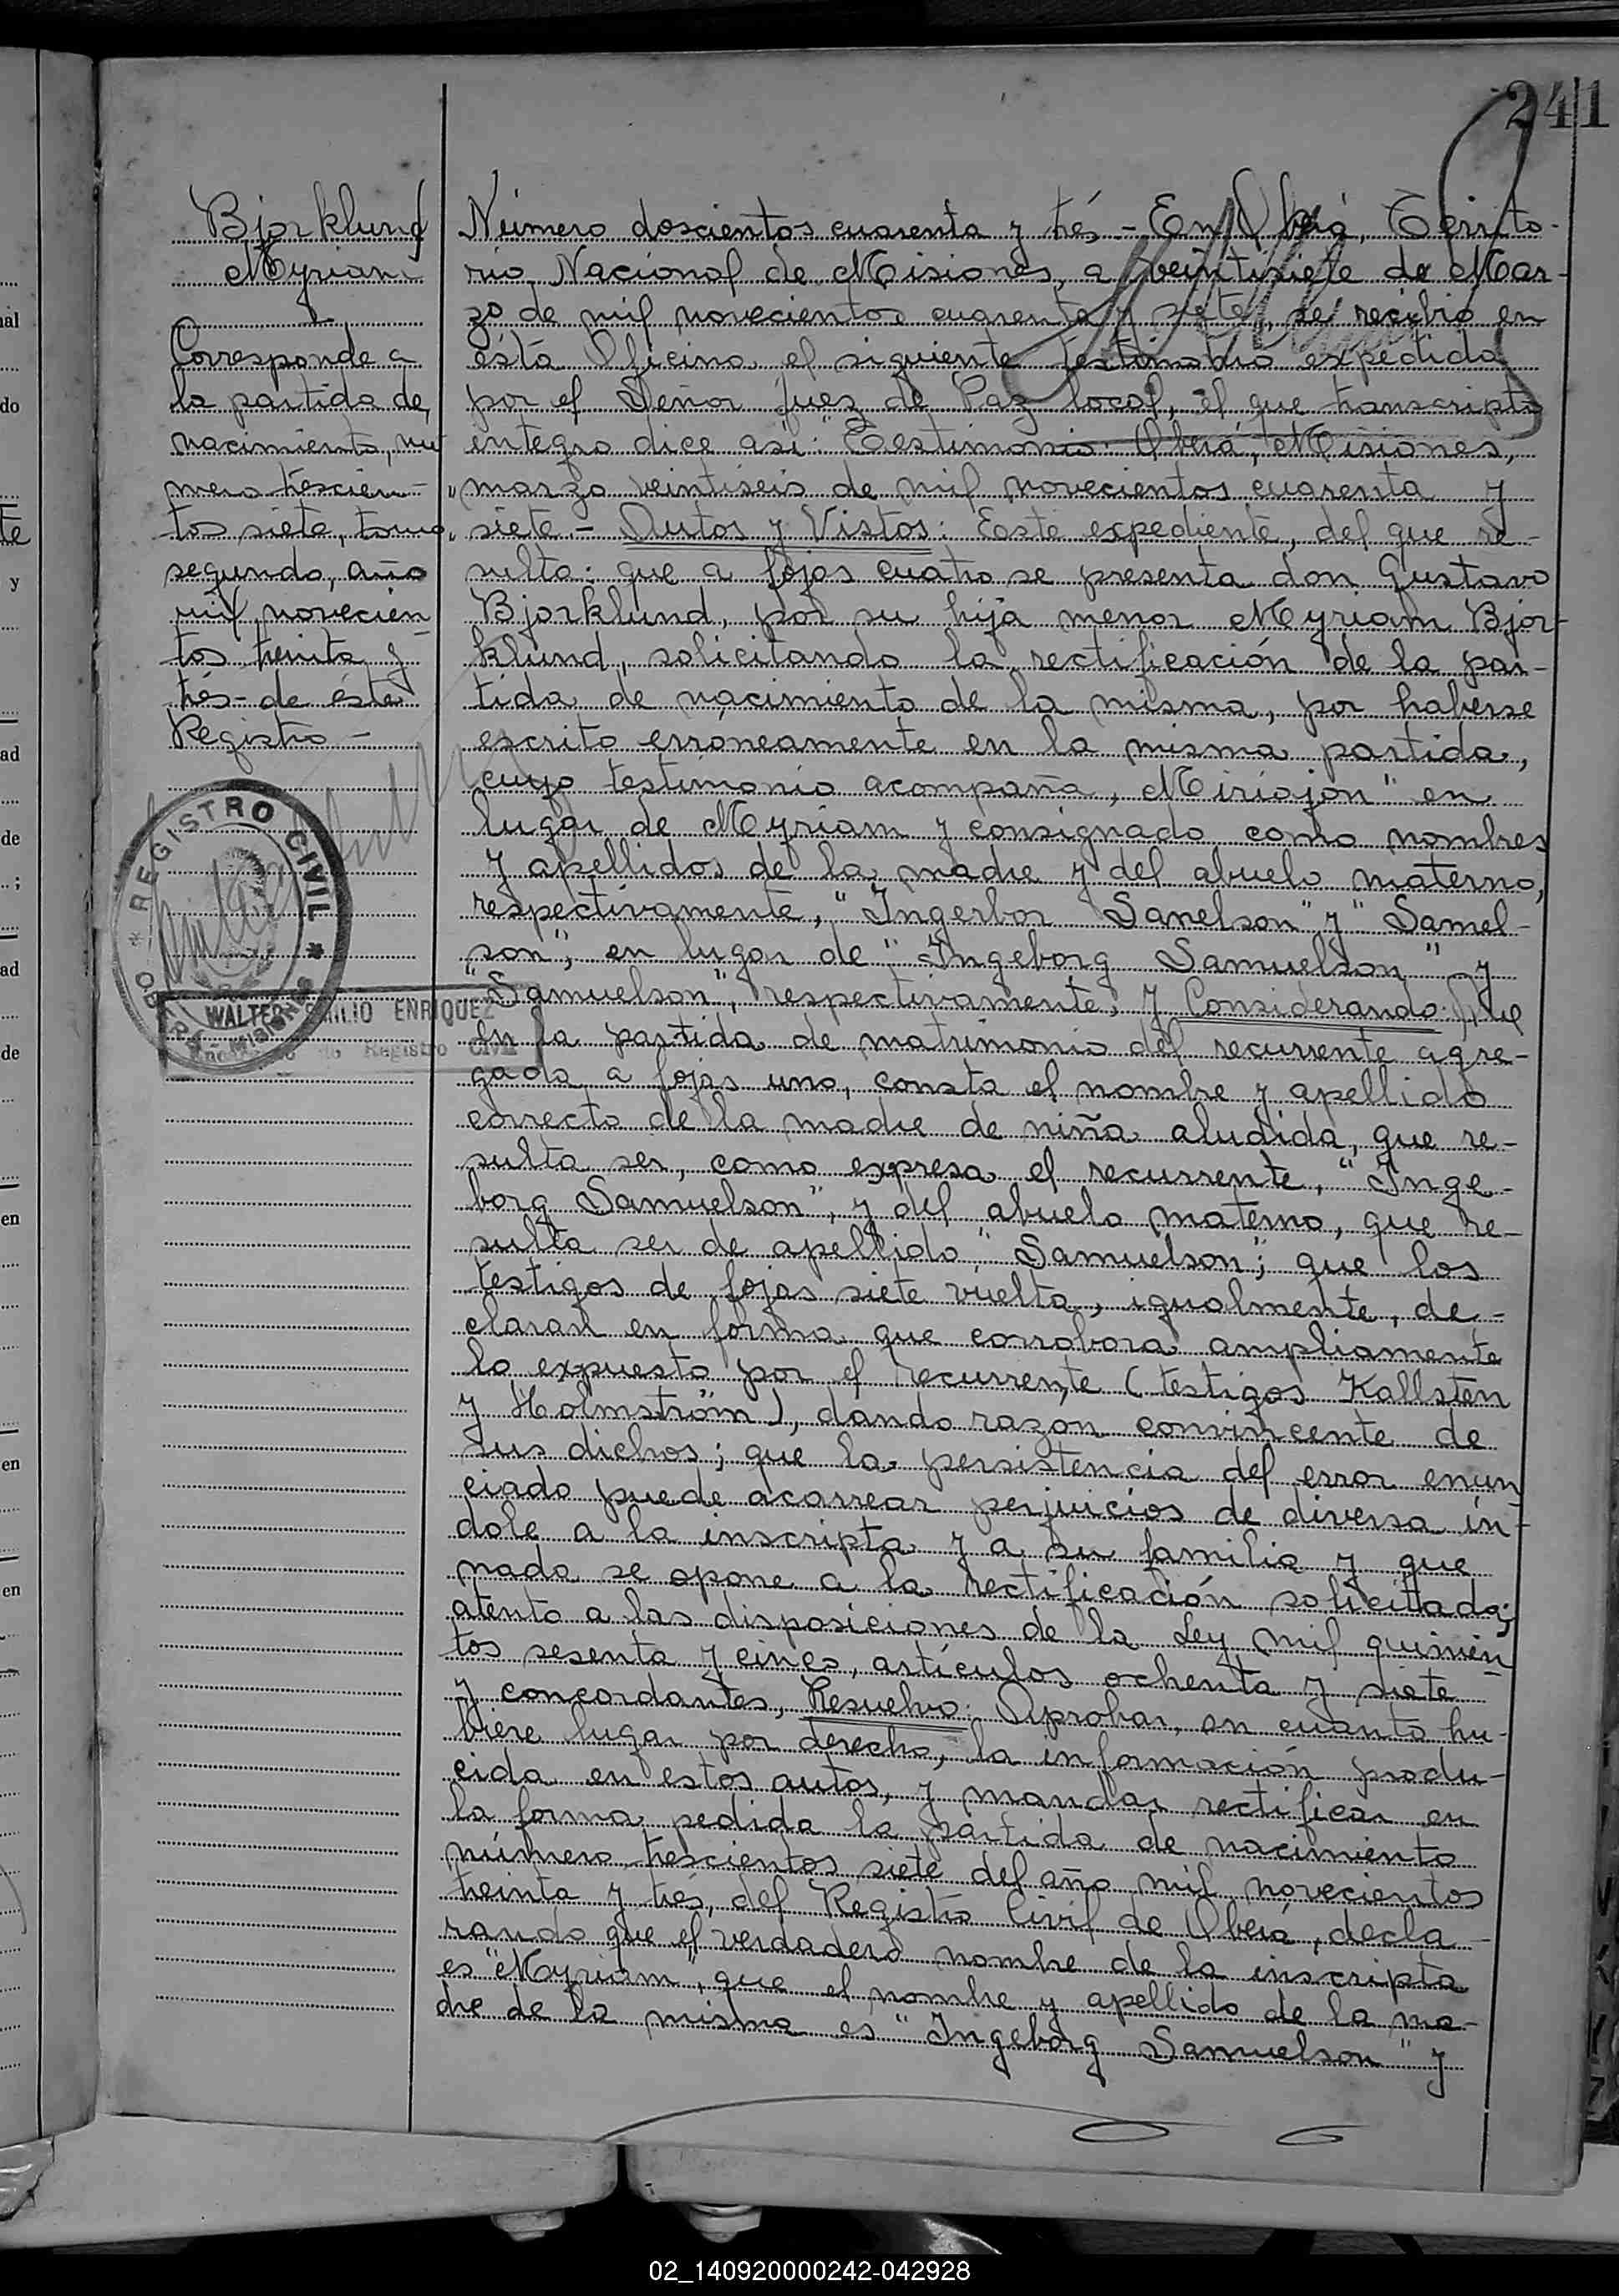 241
Bjorklund
Myriam
Corresponde a
la partida de
nacimiento, nú
mero trescien-
tos siete, tomo
segundo, año
mil novecien
tos treinta y
trés- de éste
Registro -
REGISTRO CIVIL
OBERA - MISIONES
WALTER EMILIO ENRIQUEZ
Registro Civil
Número doscientos cuarenta y trés - En Oberá, Territo-
rio Nacional de Misiones, a veintisiete de Mar-
zo de mil novecientos cuarenta y siete, se recibió en
ésta Oficina el siguiente testimonio expedido
por el Señor Juez de Paz local, el que transcripto
íntegro dice así: "Testimonio: Oberá, Misiones,
"marzo veintiseis de mil novecientos cuarenta y
" siete.- Autos y Vistos: Este expediente, del que re-
sulta: que a fojas cuatro se presenta don Gustavo
Bjorklund, por su hija menor Myriam Bjor-
klund, solicitando la rectificación de la par-
tida de nacimiento de la misma, por haberse
escrito erróneamente en la misma partida,
cuyo testimonio acompaña, Miriojon" en
lugar de Myriam y consignado como nombres
y apellidos de la madre y del abuelo materno,
respectivamente, "Ingerbor Sanelson" y "Samel-
son", en lugar de "Ingeborg Samuelson" y
"Samuelson", respectivamente, y Considerando: Que
en la partida de matrimonio del recurrente agre-
gada a fojas uno, consta el nombre y apellido
correcto de la madre de niña aludida, que re-
sulta ser, como expresa el recurrente, "Inge-
borg Samuelson", y del abuelo materno, que re-
sulta ser de apellido "Samuelson"; que los
testigos de fojas siete vuelta, igualmente, de-
claran en forma que corrobora ampliamente
lo expuesto por el recurrente (testigos Kallsten
y Holmström), dando razon convincente de
sus dichos; que la persistencia del error enun
ciado puede acarrear perjuicios de diversa ín-
dole a la inscripta y a su familia y que
nada se opone a la rectificación solicitada;
atento a las disposiciones de la Ley mil quinien
tos sesenta y cinco, artículos ochenta y siete
y concordantes, Resuelvo: Aprobar, en cuanto hu-
biere lugar por derecho, la información produ-
cida en estos autos, y mandar rectificar en
la forma pedida la partida de nacimiento
número trescientos siete del año mil novecientos
treinta y trés, del Registro Civil de Oberá, decla-
rando que el verdadero nombre de la inscripta
es "Myriam", que el nombre y apellido de la ma-
dre de la misma es "Ingeborg Samuelson" y
al
do
te
y
ad
de
;
ad
de
en
en
en
02_140920000242-042928